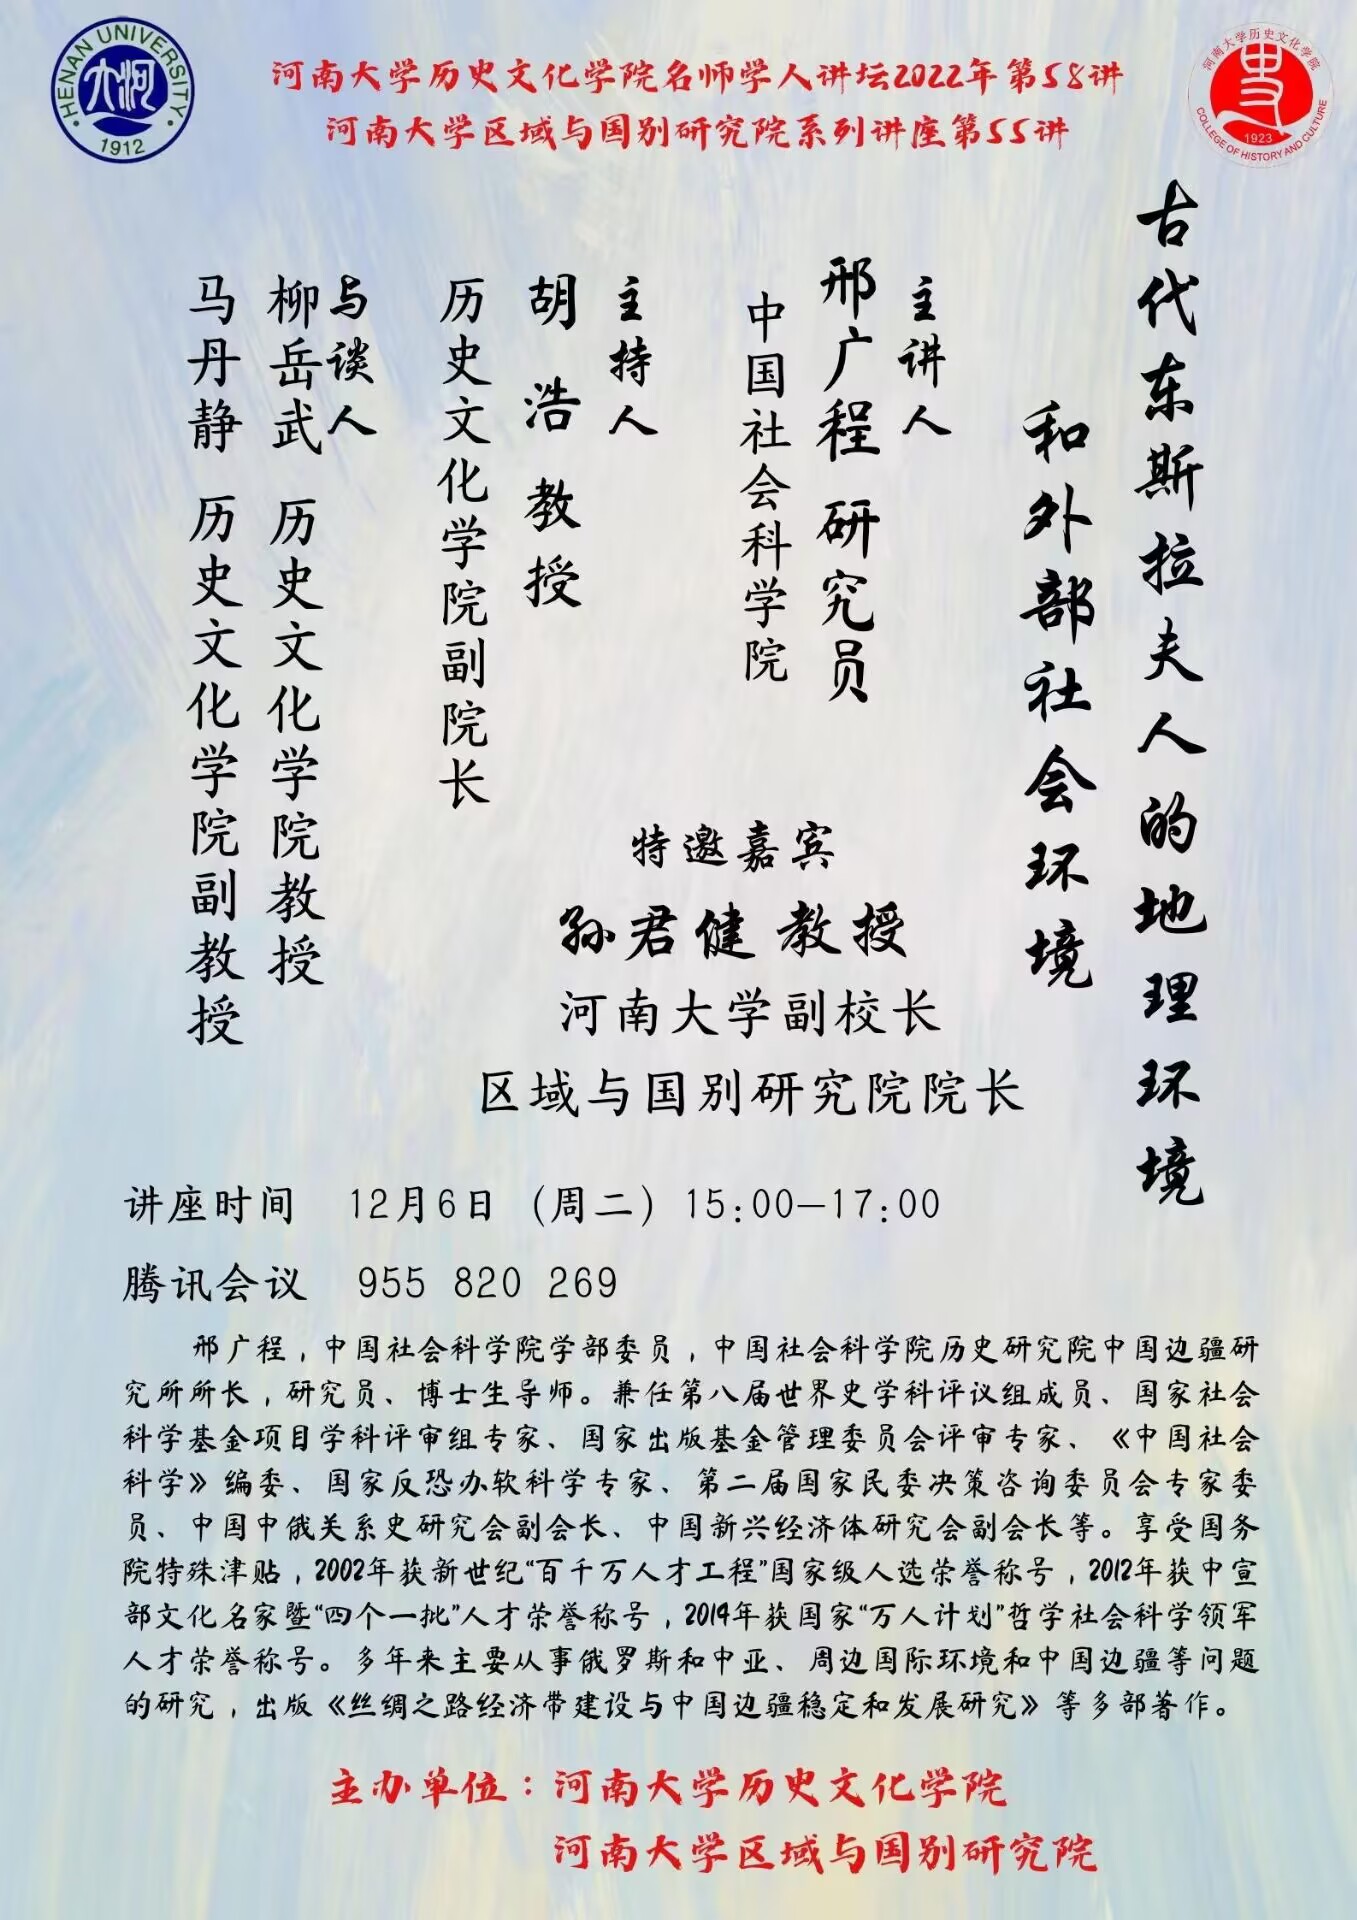 HENAN UNIVERSITY
大河
1912
河南大学历史文化学院
史
1923
COLLEGE OF HISTORY AND CULTURE
河南大学历史文化学院名师学人讲坛2022年第58讲
河南大学区域与国别研究院系列讲座第55讲
古代东斯拉夫人的地理环境
和外部社会环境
主讲人
邢广程 研究员
中国社会科学院
主持人
胡浩 教授
历史文化学院副院长
与谈人
柳岳武 历史文化学院教授
马丹静 历史文化学院副教授
特邀嘉宾
孙君健 教授
河南大学副校长
区域与国别研究院院长
讲座时间 12月6日（周二）15:00—17:00
腾讯会议 955 820 269
邢广程，中国社会科学院学部委员，中国社会科学院历史研究院中国边疆研
究所所长，研究员、博士生导师。兼任第八届世界史学科评议组成员、国家社会
科学基金项目学科评审组专家、国家出版基金管理委员会评审专家、《中国社会
科学》编委、国家反恐办软科学专家、第二届国家民委决策咨询委员会专家委
员、中国中俄关系史研究会副会长、中国新兴经济体研究会副会长等。享受国务
院特殊津贴，2002年获新世纪“百千万人才工程”国家级人选荣誉称号，2012年获中宣
部文化名家暨“四个一批”人才荣誉称号，2014年获国家“万人计划”哲学社会科学领军
人才荣誉称号。多年来主要从事俄罗斯和中亚、周边国际环境和中国边疆等问题
的研究，出版《丝绸之路经济带建设与中国边疆稳定和发展研究》等多部著作。
主办单位：河南大学历史文化学院
河南大学区域与国别研究院